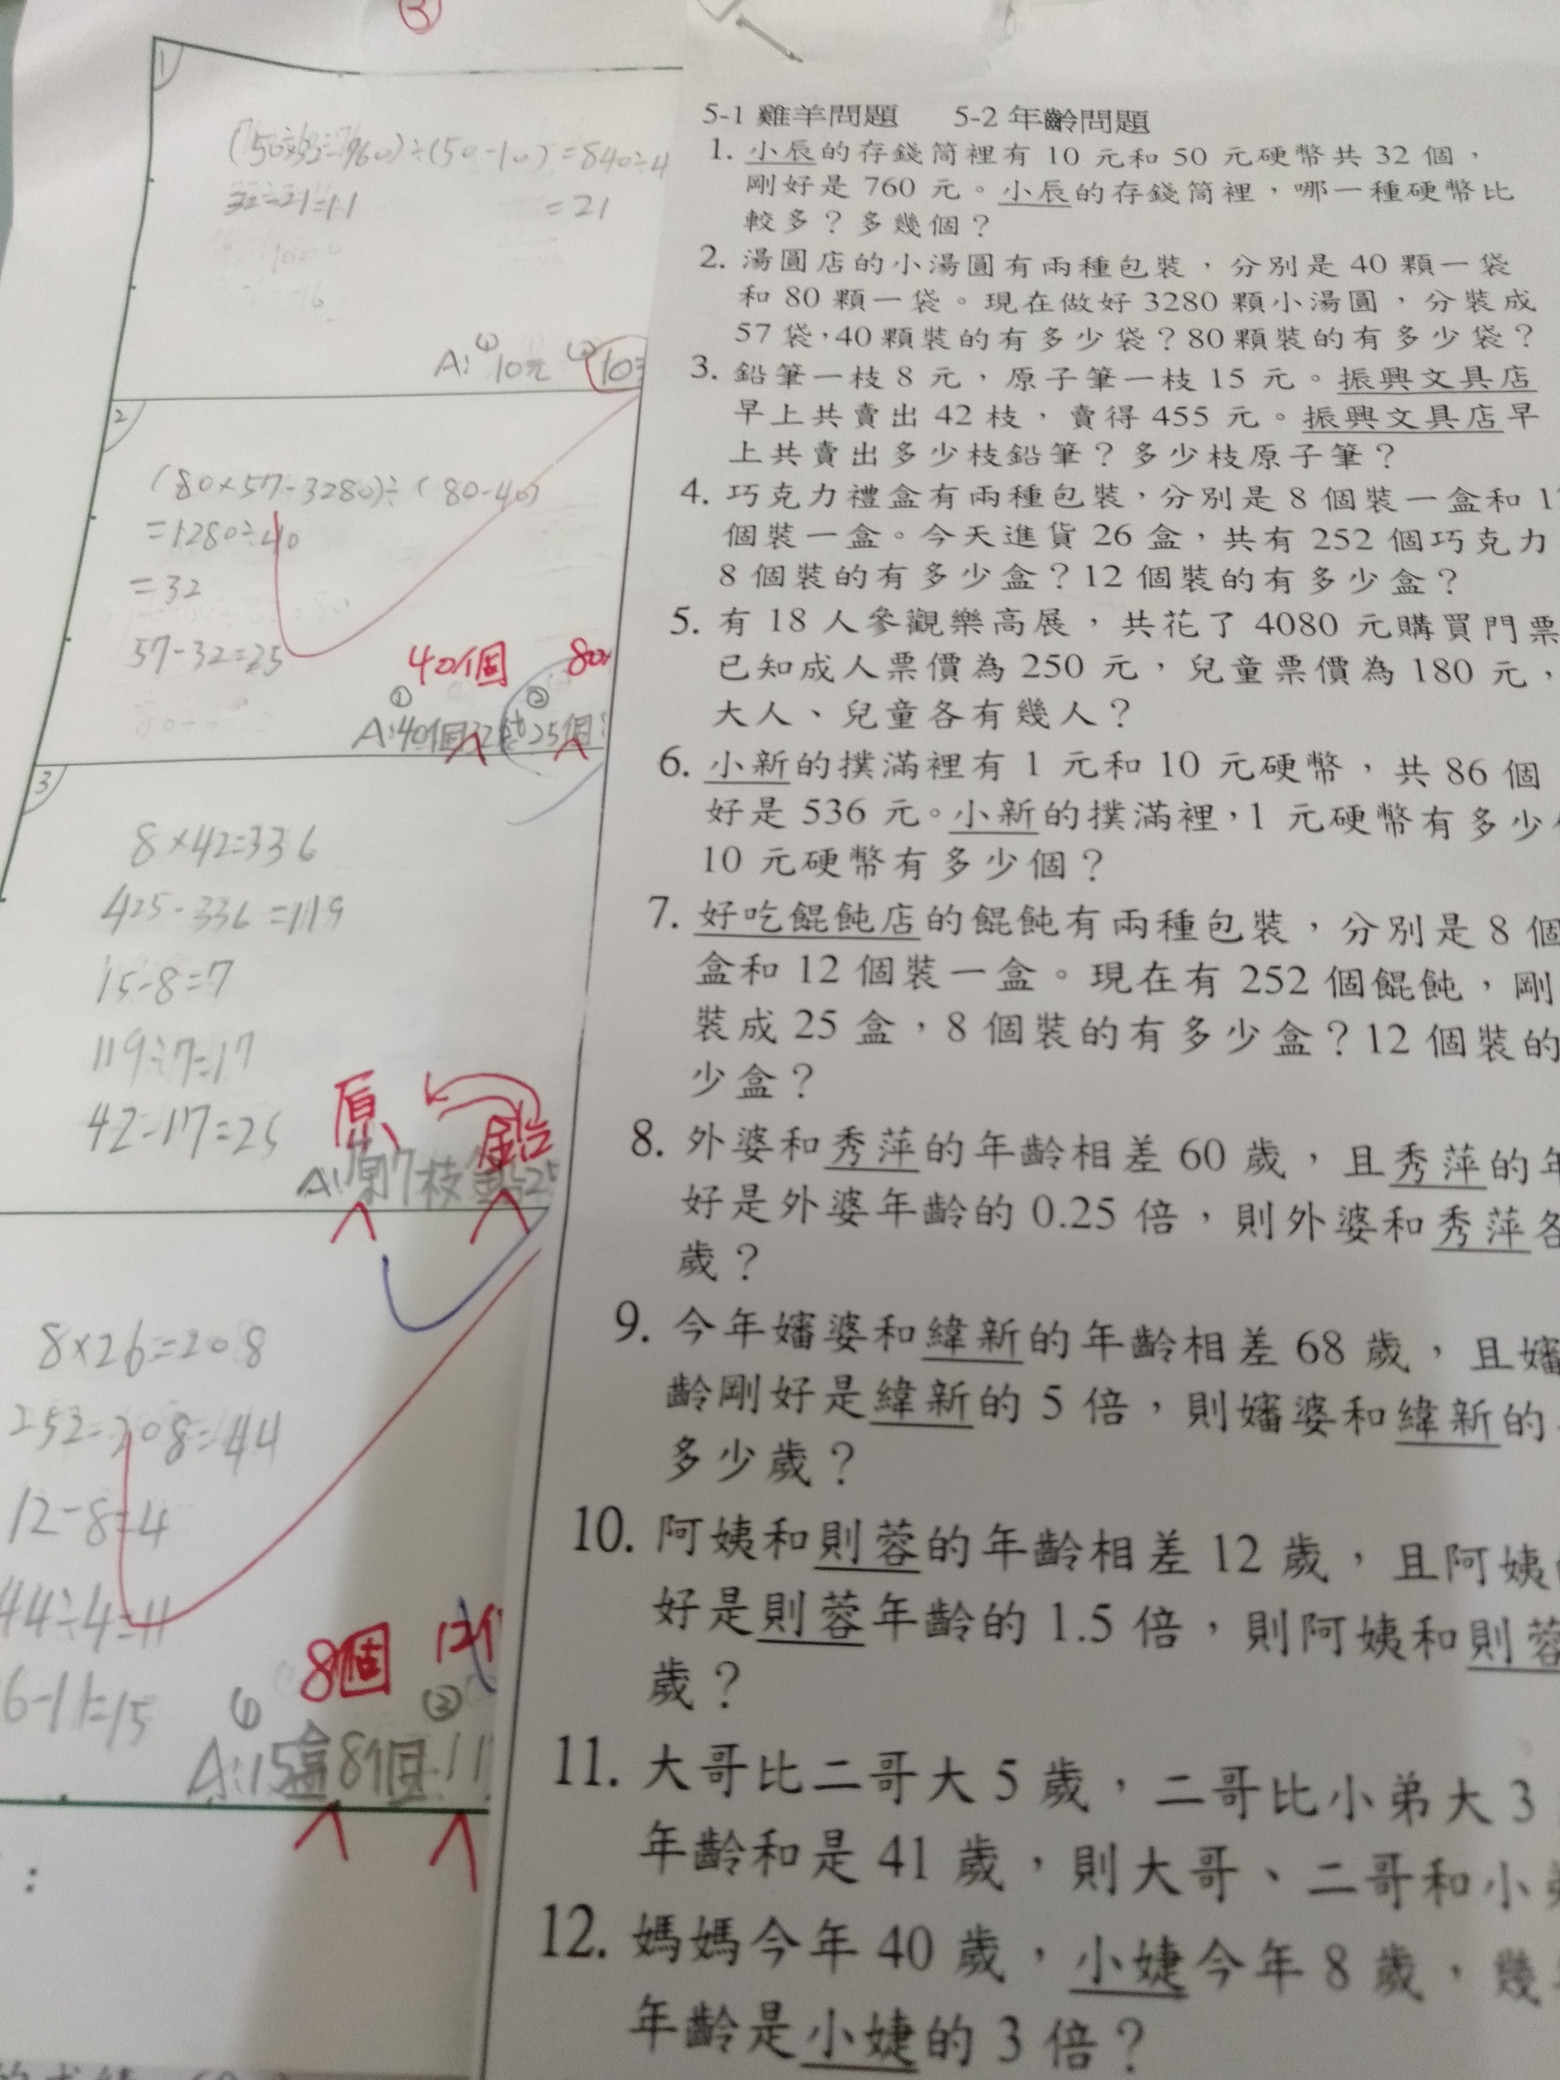 ③
1
(50×32-760)÷(50-10)=840÷4
32-21=11
=21
A:①10元 ②10
2
(80×57-3280)÷(80-40)
=1280÷40
=32
57-32=25
40個 80
① ②
A:40個32 25個
3
8×42=336
425-336=119
15-8=7
119÷7=17
42-17=25
原 鉛
A:原17枝 鉛25
8×26=208
252-208=44
12-8=4
44÷4=11
6-11=15
8個 12個
① ②
A:15盒8個 11
:
5-1 雞羊問題 5-2 年齡問題
1. 小辰的存錢筒裡有 10 元和 50 元硬幣共 32 個,
剛好是 760 元。小辰的存錢筒裡,哪一種硬幣比
較多?多幾個?
2. 湯圓店的小湯圓有兩種包裝,分別是 40 顆一袋
和 80 顆一袋。現在做好 3280 顆小湯圓,分裝成
57 袋,40 顆裝的有多少袋?80 顆裝的有多少袋?
3. 鉛筆一枝 8 元,原子筆一枝 15 元。振興文具店
早上共賣出 42 枝,賣得 455 元。振興文具店早
上共賣出多少枝鉛筆?多少枝原子筆?
4. 巧克力禮盒有兩種包裝,分別是 8 個裝一盒和 1
個裝一盒。今天進貨 26 盒,共有 252 個巧克力
8 個裝的有多少盒?12 個裝的有多少盒?
5. 有 18 人參觀樂高展,共花了 4080 元購買門票
已知成人票價為 250 元,兒童票價為 180 元,
大人、兒童各有幾人?
6. 小新的撲滿裡有 1 元和 10 元硬幣,共 86 個
好是 536 元。小新的撲滿裡,1 元硬幣有多少
10 元硬幣有多少個?
7. 好吃餛飩店的餛飩有兩種包裝,分別是 8 個
盒和 12 個裝一盒。現在有 252 個餛飩,剛
裝成 25 盒,8 個裝的有多少盒?12 個裝的
少盒?
8. 外婆和秀萍的年齡相差 60 歲,且秀萍的年
好是外婆年齡的 0.25 倍,則外婆和秀萍各
歲?
9. 今年嬸婆和緯新的年齡相差 68 歲,且嬸
齡剛好是緯新的 5 倍,則嬸婆和緯新的
多少歲?
10. 阿姨和則蓉的年齡相差 12 歲,且阿姨
好是則蓉年齡的 1.5 倍,則阿姨和則蓉
歲?
11. 大哥比二哥大 5 歲,二哥比小弟大 3
年齡和是 41 歲,則大哥、二哥和小弟
12. 媽媽今年 40 歲,小婕今年 8 歲,幾
年齡是小婕的 3 倍?